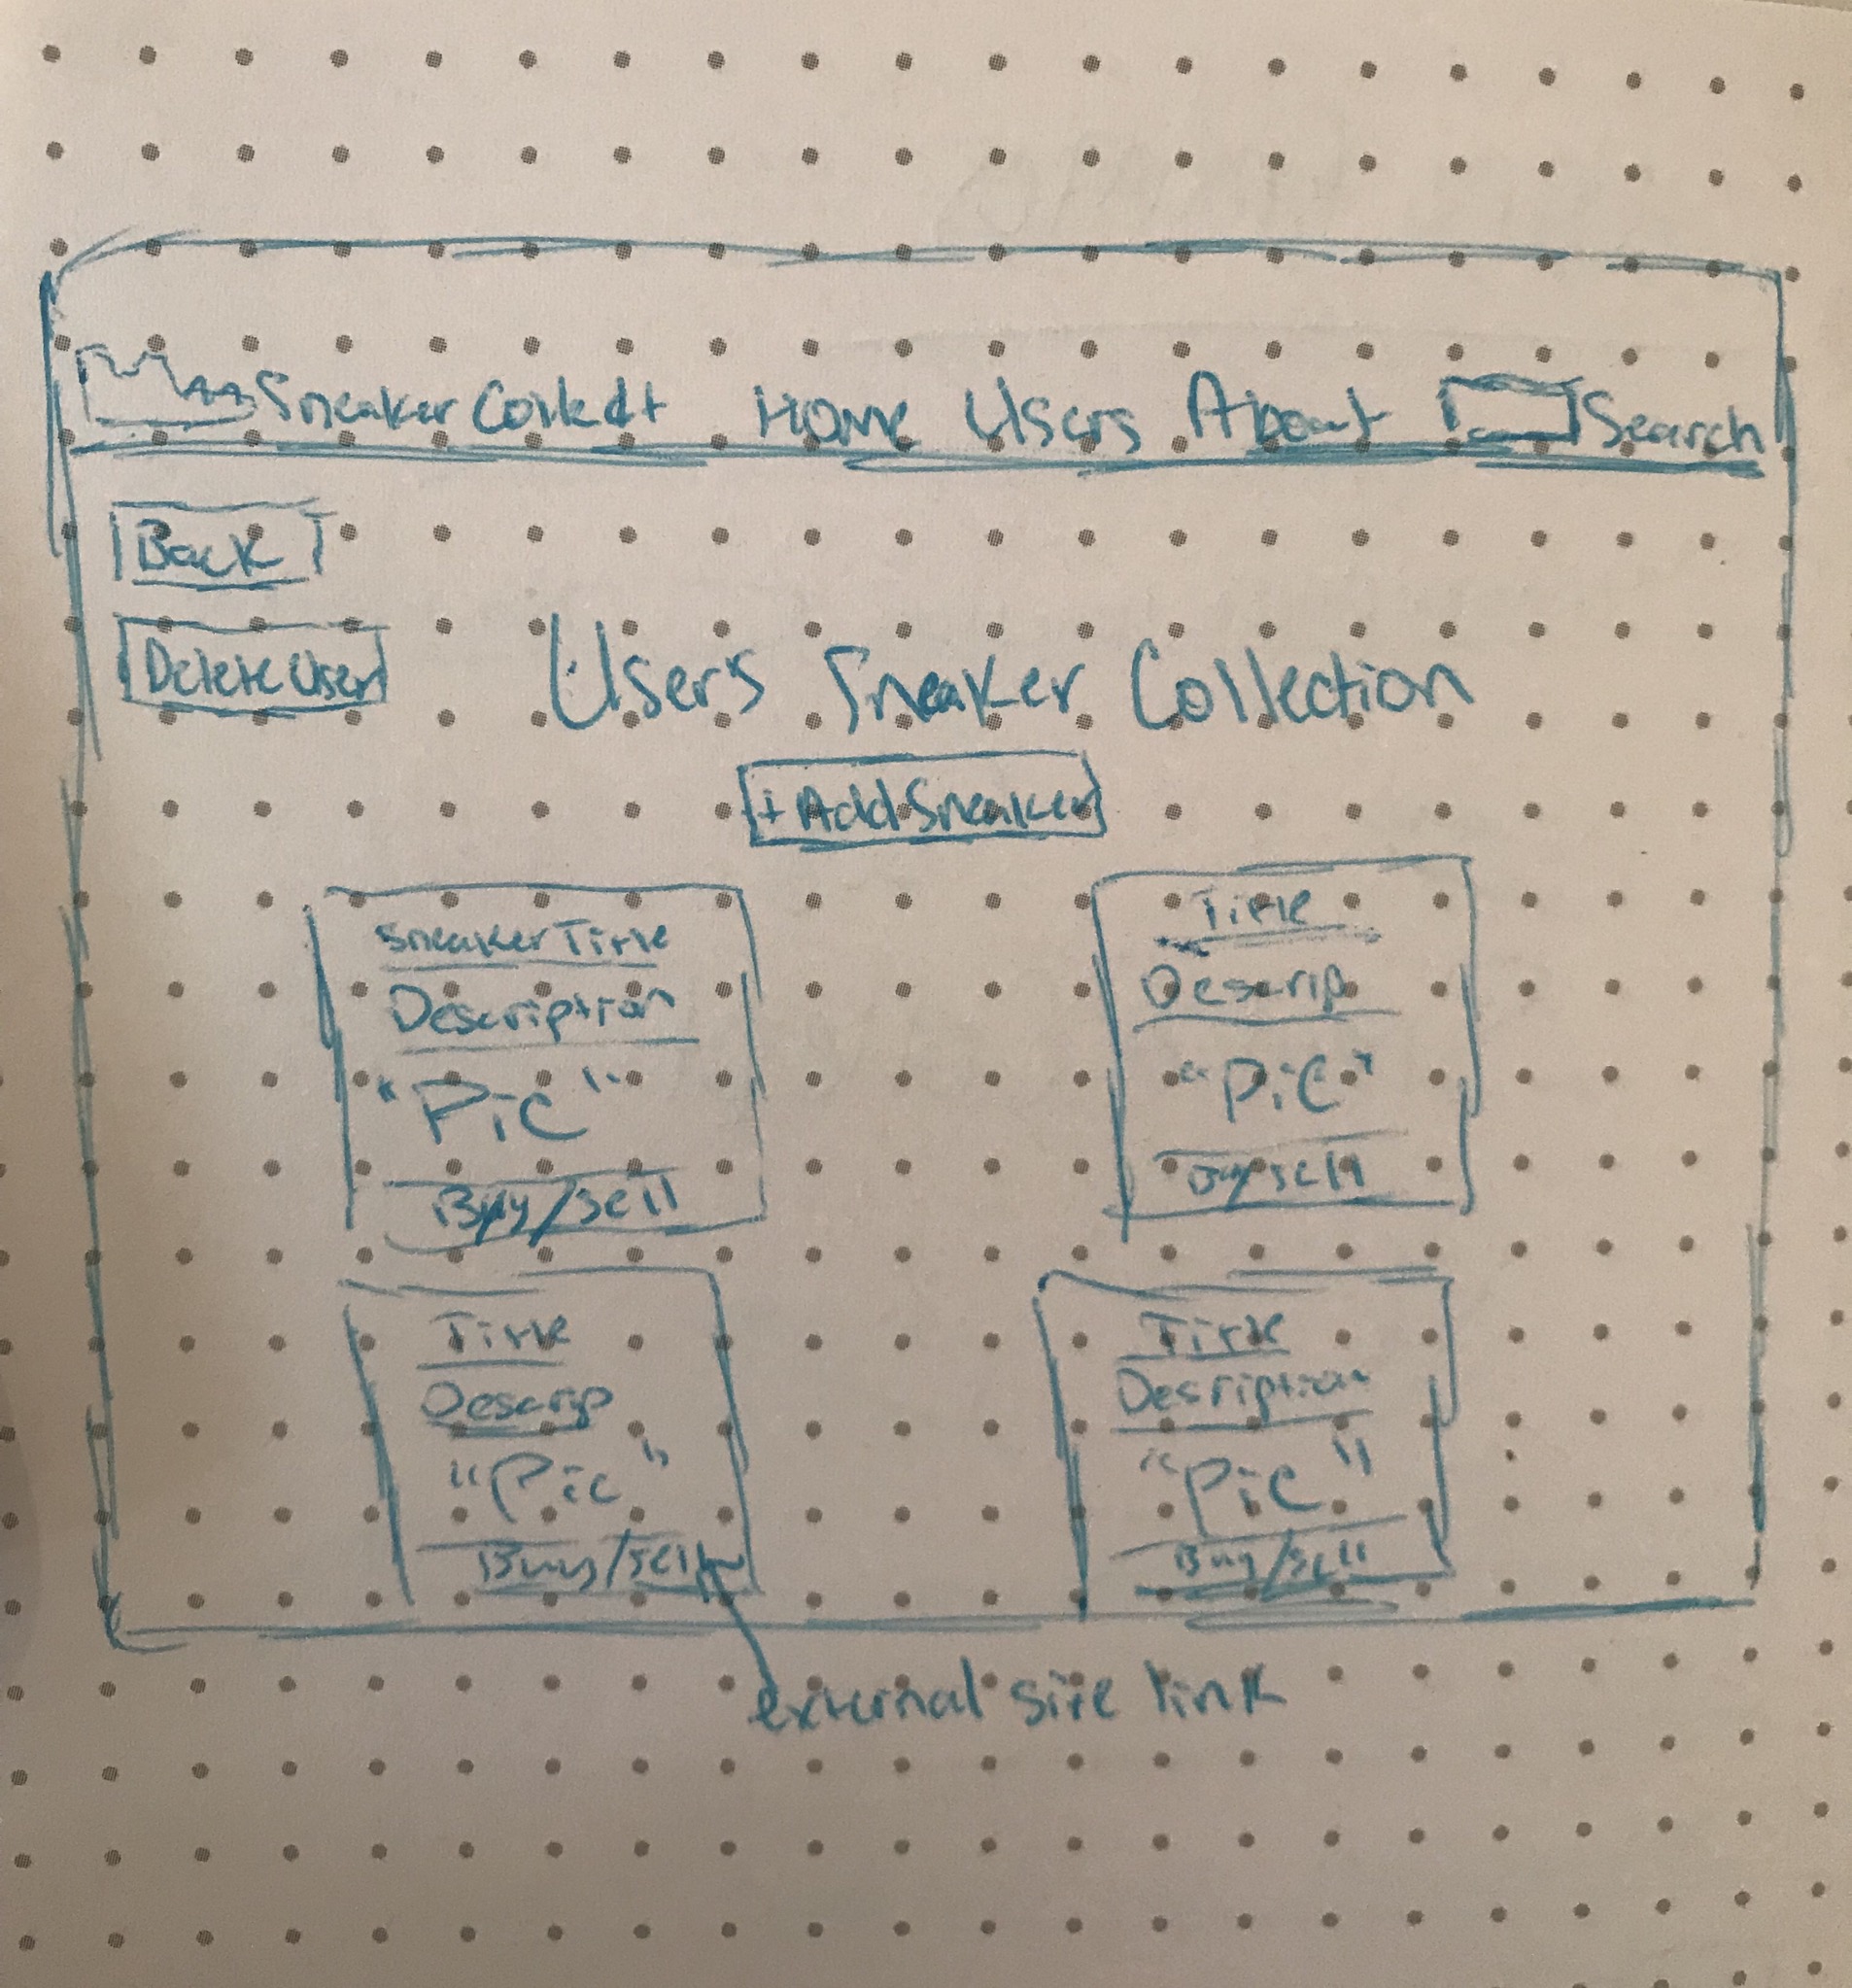 Sneaker Collect Home Users About Search
Back
Delete User
User's Sneaker Collection
+ Add Sneaker
Sneaker Title
Description
"Pic"
Buy/Sell
Title
Descrip
"Pic"
Buy/Sell
Title
Descrip
"Pic"
Buy/Sell
Title
Desription
"Pic"
Buy/Sell
external site link